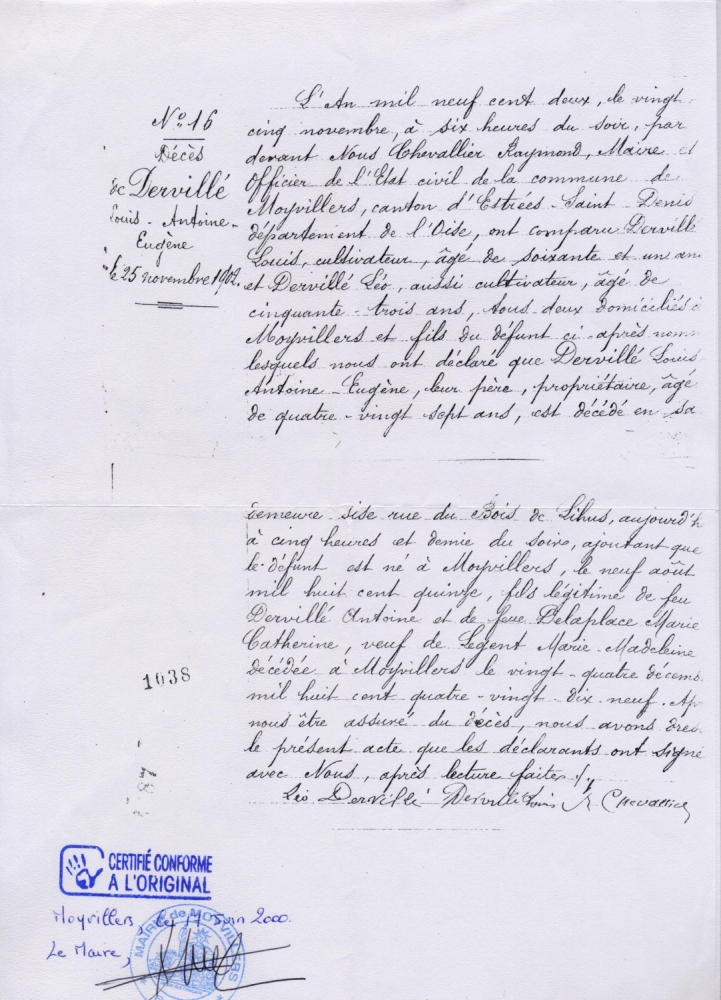 N° 16
Décès
de Dervillé
Louis-Antoine-
Eugène
le 25 novembre 1902.
L'An mil neuf cent deux, le vingt-
cinq novembre, à six heures du soir, par
devant Nous Chevallier Raymond, Maire et
Officier de l'Etat civil de la commune de
Moyvillers, canton d'Estrées-Saint-Denis
département de l'Oise, ont comparu Dervillé
Louis, cultivateur, âgé de soixante et un ans
et Dervillé Léo, aussi cultivateur, âgé de
cinquante-trois ans, tous deux domiciliés à
Moyvillers et fils du défunt ci-après nomm
lesquels nous ont déclaré que Dervillé Louis
Antoine-Eugène, leur père, propriétaire, âgé
de quatre-vingt sept ans, est décédé en sa
demeure sise rue du Bois de Lihus, aujourd'h
à cinq heures et demie du soir, ajoutant que
le défunt est né à Moyvillers, le neuf août
mil huit cent quinze, fils légitime de feu
Dervillé Antoine et de feue Delaplace Marie
Catherine, veuf de Legent Marie-Madeleine
décédée à Moyvillers le vingt-quatre décemb
mil huit cent quatre-vingt-dix-neuf. Ap
nous être assuré du décès, nous avons dres
le présent acte que les déclarants ont signé
avec Nous, après lecture faite.
Léo Dervillé Dervillé Louis R. Chevallier
1038
CERTIFIÉ CONFORME
A L'ORIGINAL
Moyvillers, le 17 Juin 2000.
Le Maire,
MAIRIE de MOYVILLERS